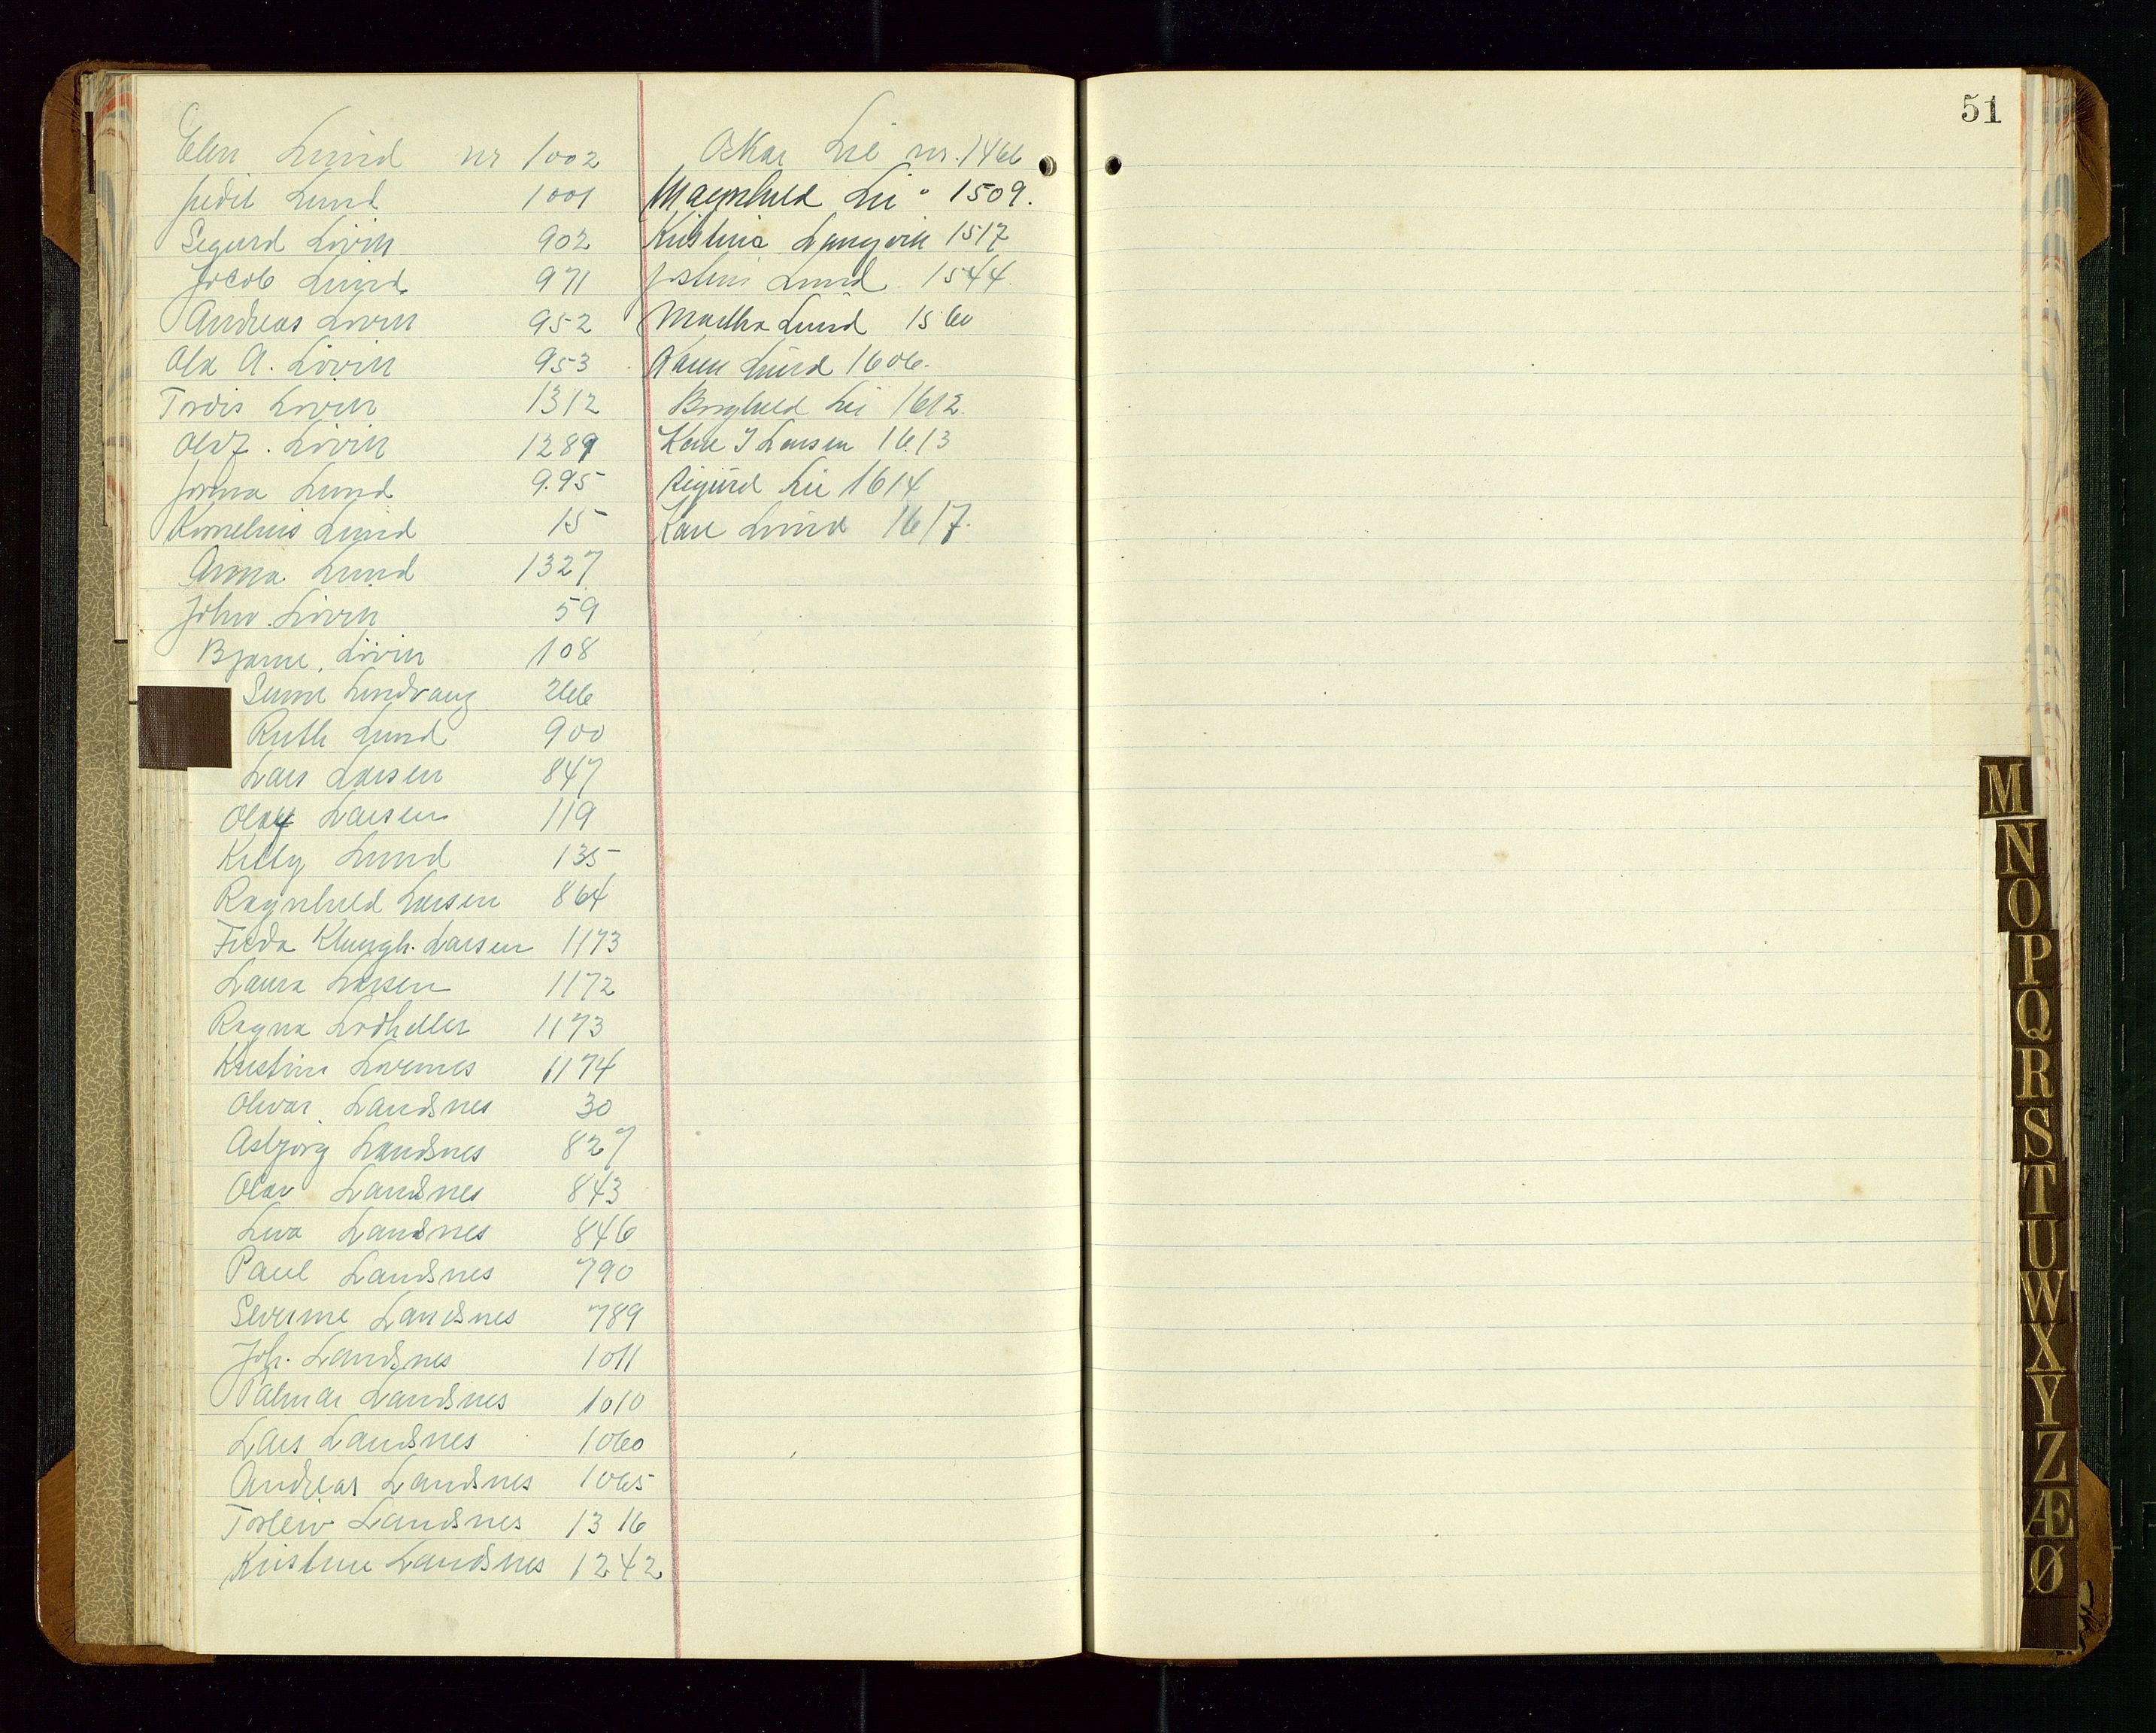 Elen Lund nr 1002
Judit Lund 1001
Sigurd Lovik 902
Jacob Lund 971
Andreas Lovik 952
Ola A. Lövik 953
Tordis Lovik 1312
Olaf. Lövik 1289
Jorina Lund 995
Kornelius Lund 15
Anna Lund 1327
John. Lövik 59
Bjarne. Lövik 108
Lindvang 266
Ruth Lund 900
Lars Larsen 847
Olaf Larsen 119
Kitty Lund 135
Ragnhild Larsen 864
Frida Klungh. Larsen 1173
Laura Larsen 1172
Ragna Lodheller 1173
Kristine 1174
Olivar Landsnes 30
Asbjörg Landsnes 827
Olav Landsnes 843
Liva Landsnes 846
Paul Landsnes 790
Severine Landsnes 789
Joh. Landsnes 1011
Palmar Landsnes 1010
Lars Landsnes 1060
Andreas Landsnes 1065
Torleiv Landsnes 1316
Kristine Landsnes 1242
Oskar Lie nr. 1466
Magnhild Lie " 1509.
Kristina Langvik 1517
Jostein Lund 1544
Martha Lund 1560
Karen Lund 1606.
Borghild Lie 1612
Kare J Larsen 1613
Sigurd Lie 1614
Kare Lund 1617.
51
M
N
O
P
Q
R
S
T
U
W
X
Y
Z
Æ
Ø